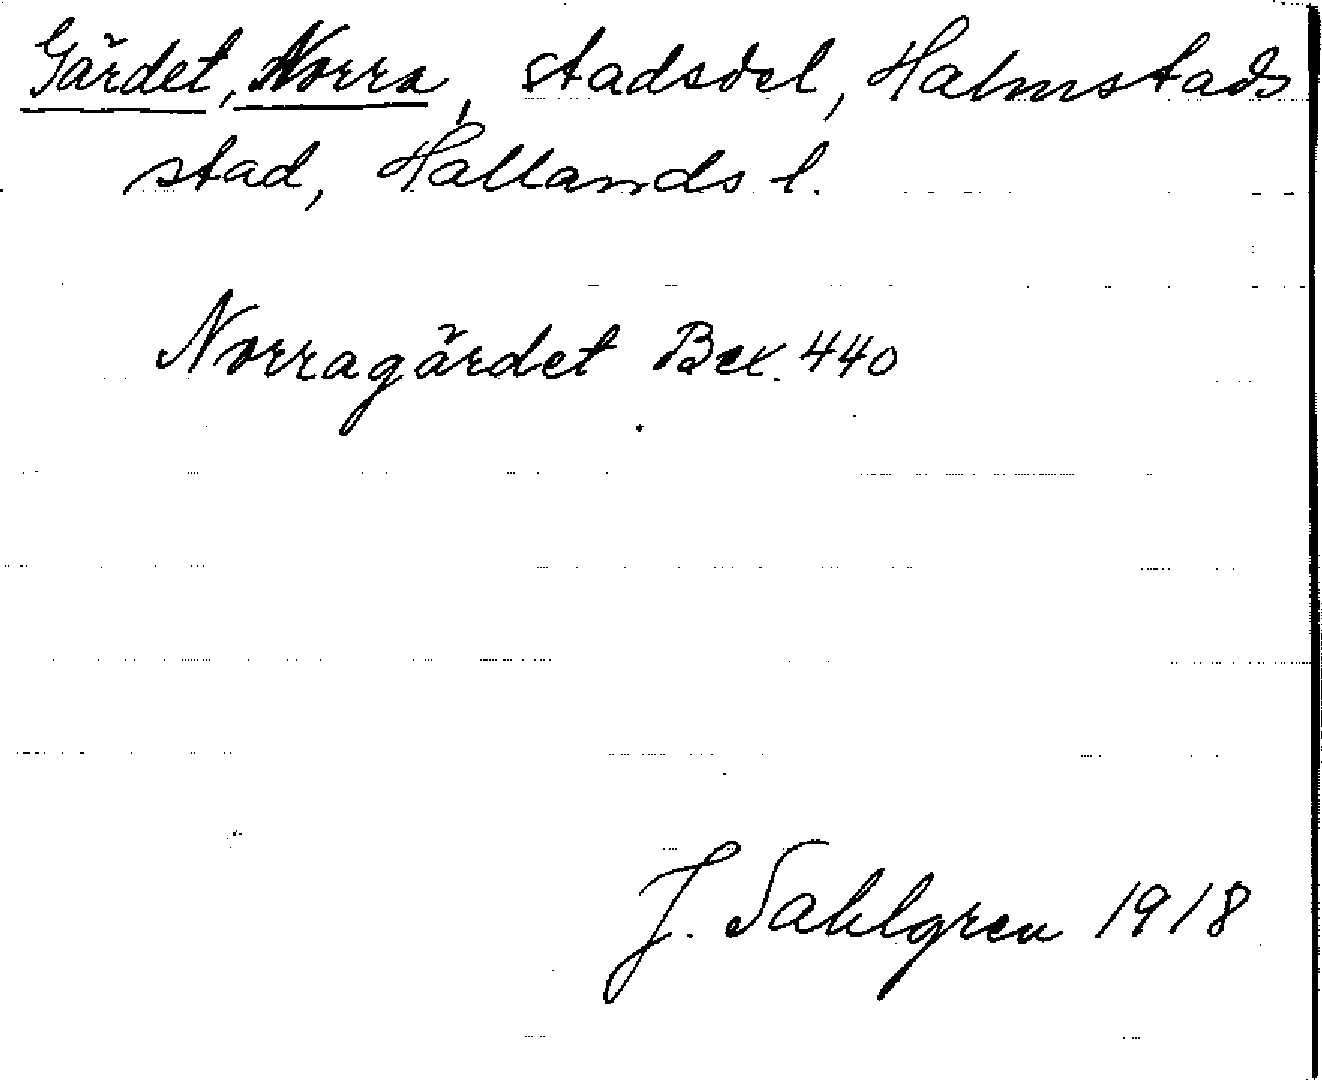 Gärdet, Norra, stadsdel, Halmstads
stad, Hallands l.
Norragärdet Bex. 440
J. Sahlgren 1918